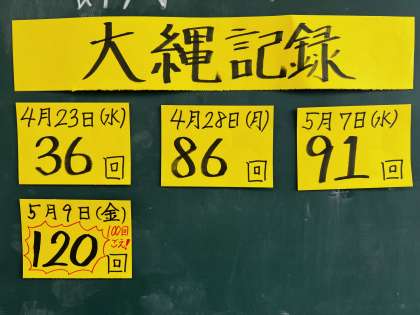 大縄記録
4月23日(水)
36回
4月28日(月)
86回
5月7日(水)
91回
5月9日(金)
100回
こえ!
120回